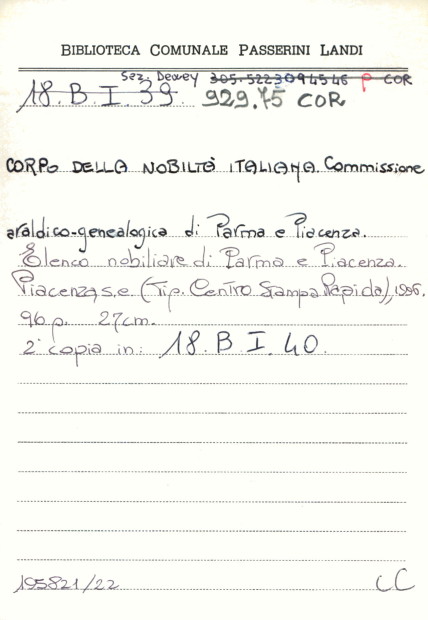 BIBLIOTECA COMUNALE PASSERINI LANDI
Sez. Dewey 305.5223094546 P COR
18. B. I. 39 929.75 COR
CORPO DELLA NOBILTÀ ITALIANA. Commissione
araldico-genealogica di Parma e Piacenza.
Elenco nobiliare di Parma e Piacenza.
Piacenza, s.e. (Tip. Centro Stampa Rapida),
96 p. 27cm.
2ª copia in: 18. B. I. 40.
195821/22 CC